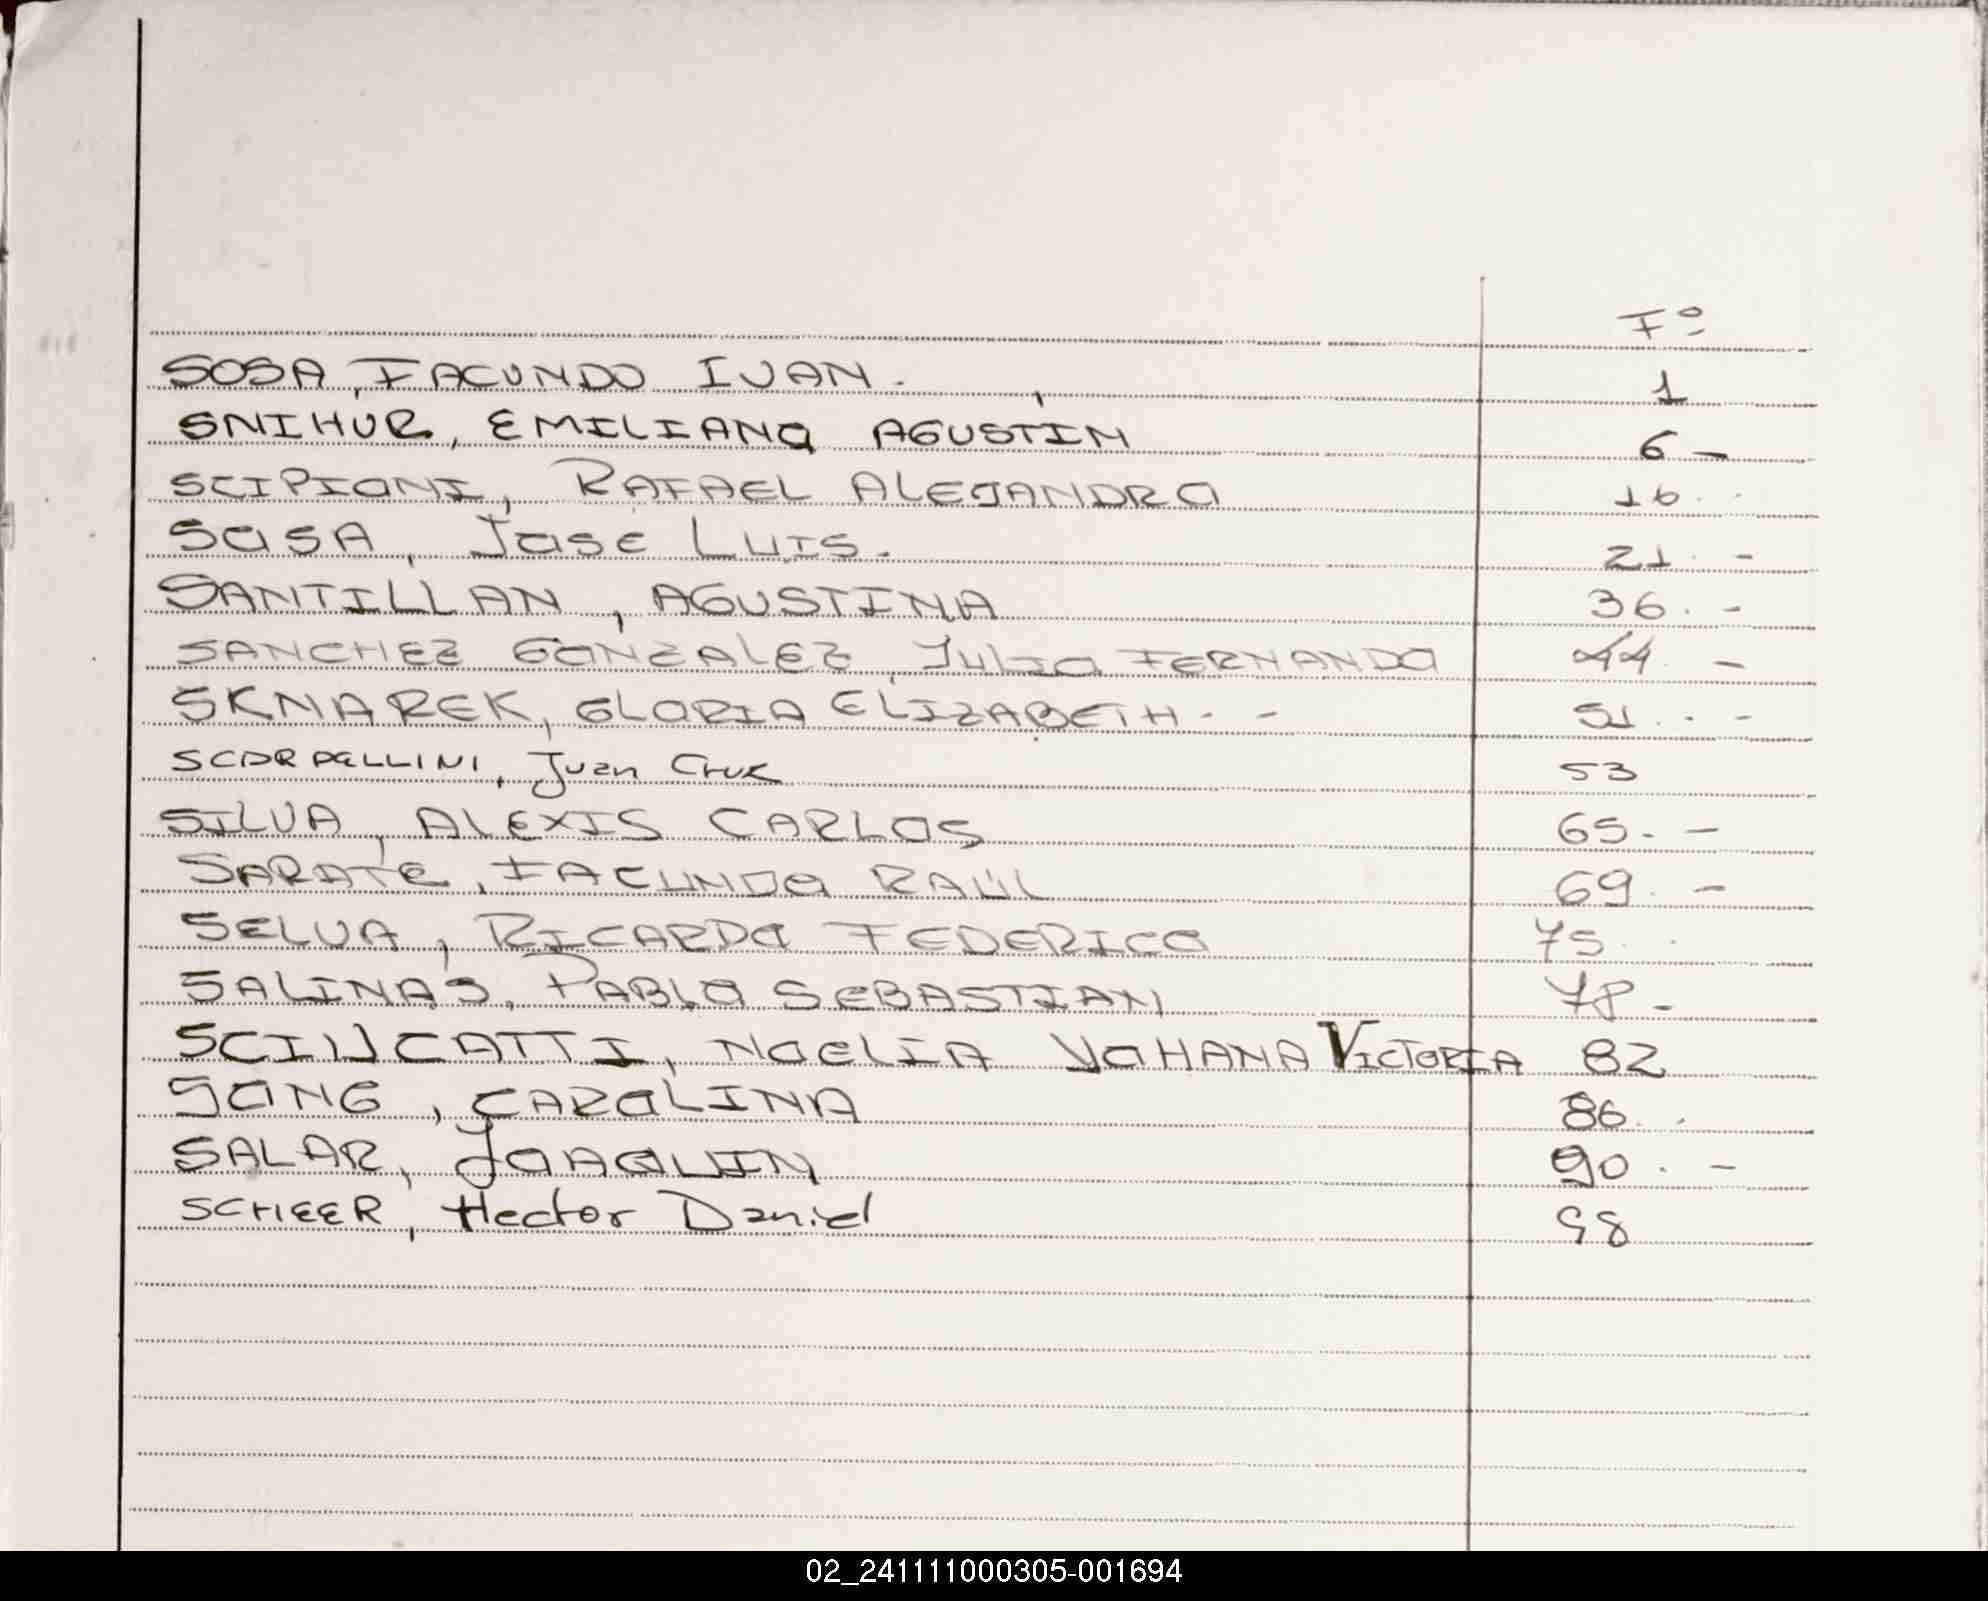 Fº
SOSA, FACUNDO IVAN. 1
SNIHUR, EMILIANO AGUSTIN 6 -
SCIPIONI, RAFAEL ALEJANDRO 16. .
SOSA, Jose LUIS. 21. -
SANTILLAN, AGUSTINA 36. -
SANCHEZ GONZALEZ, Julio FERNANDO 44. -
SKNAREK, GLORIA ELIZABETH. - 51. . -
Juan Cruz 53
SILVA, ALEXIS CARLOS 65. -
SARATE, FACUNDO RAÚL 69. -
SELVA, RICARDO FEDERICO 75. .
SALINAS, PABLO SEBASTIAN 78 -
NOELIA YOHANA VICTORIA 82
SONG, CAROLINA 86. .
SALAR, JOAQUIN 90. -
SCHEER, Hector Daniel 98
02_241111000305-001694